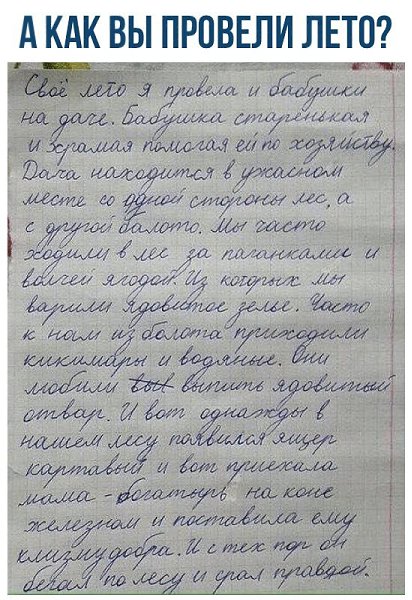 А КАК ВЫ ПРОВЕЛИ ЛЕТО?
Своё лето я провела и бабушки
на даче. Бабушка старенькая
и храмая помогая ей по хозяйству.
Дача находится в ужасном
месте со одной стороны лес, а
с другой балото. Мы часто
ходили в лес за паганками и
волчей ягодой. Из которых мы
варили ядовитое зелье. Часто
к нам из болота приходили
кикимары и водяные. Они
любили выпить ядовитый
отвар. И вот однажды в
нашем лесу появился ящер
картавый и вот приехала
мама - богатырь на коне
железном и поставила ему
клизму добра. И с тех пор он
бегал по лесу и срал правдой.